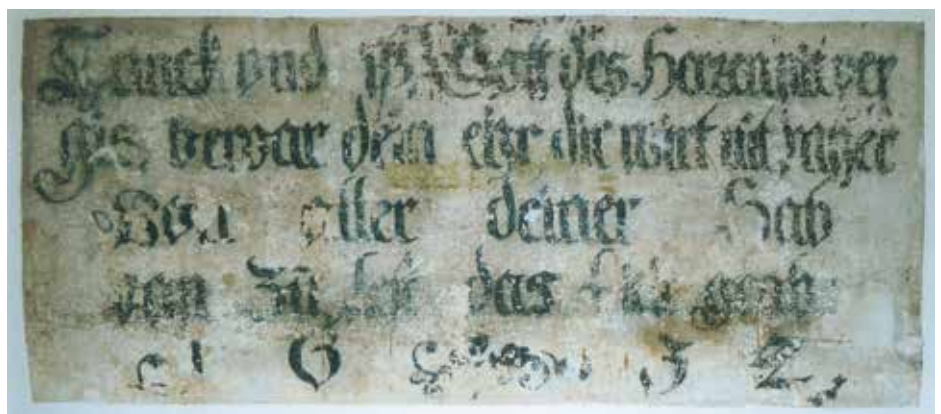 Trinck vnd iß Gott des Herren nit ver
gis bewar dein ehr dir wirt nit meher
Von aller deiner Hab
dan Zu das
1 6 3 2